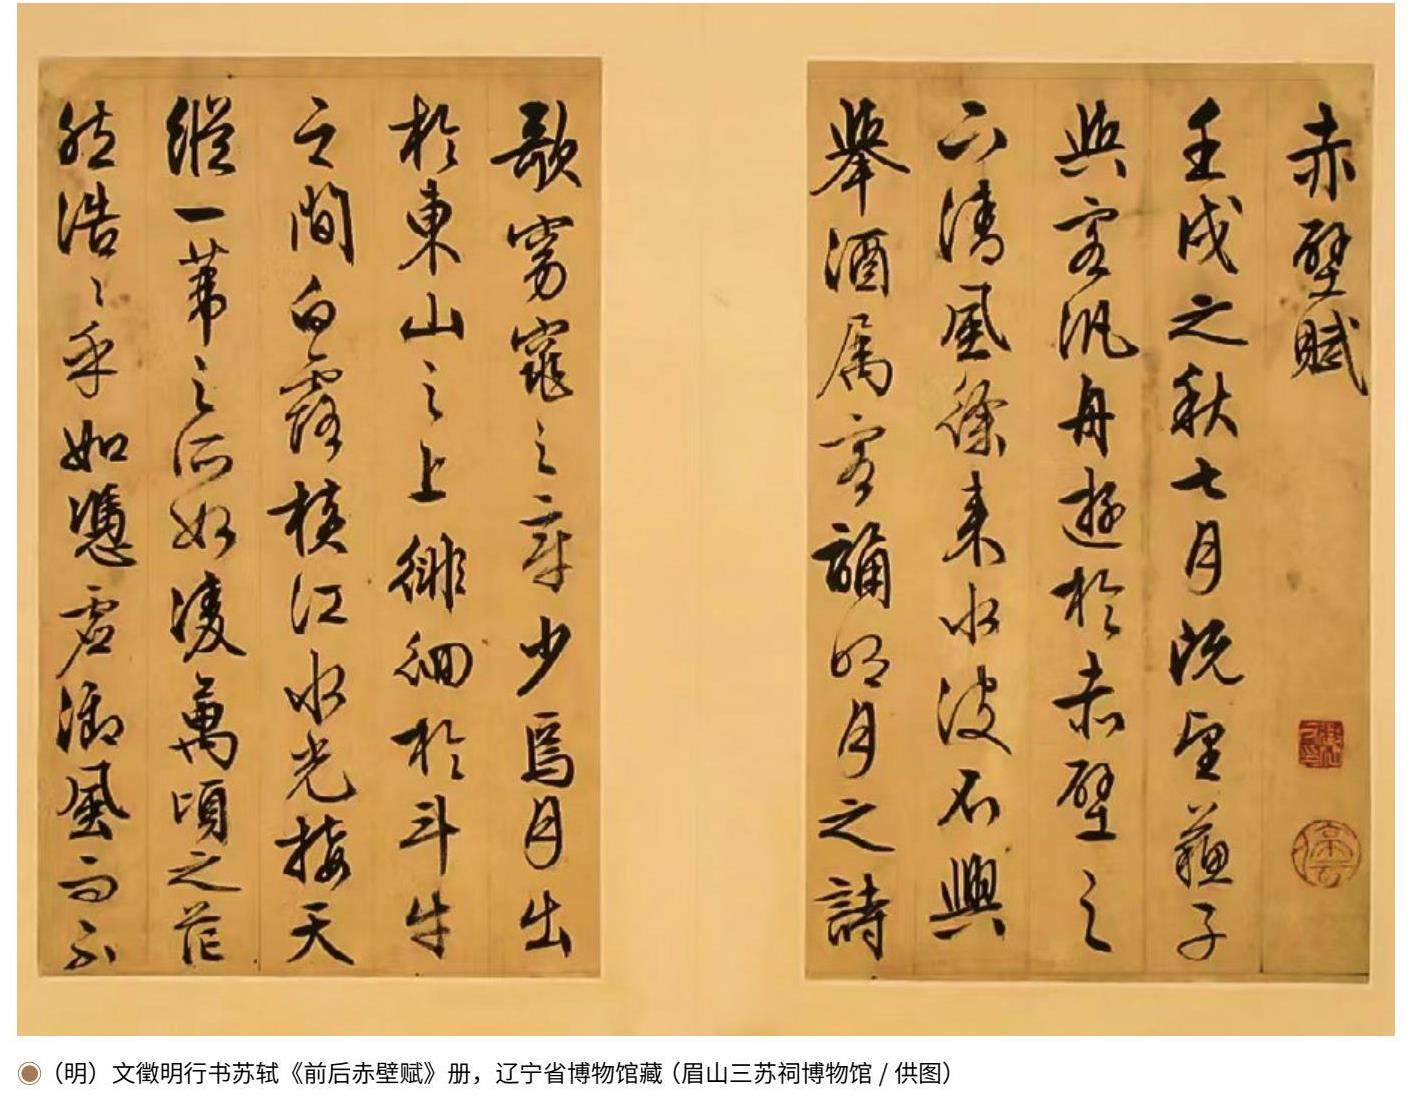 赤壁賦
壬戌之秋七月既望蘇子
與客汎舟遊於赤壁之
下清風徐來水波不興
舉酒属客誦明月之詩
歌窈窕之章少焉月出
於東山之上徘徊於斗牛
之間白露横江水光接天
縱一葦之所如凌萬頃之茫
然浩〻乎如憑虛御風而不
（明）文徵明行书苏轼《前后赤壁赋》册，辽宁省博物馆藏（眉山三苏祠博物馆 / 供图）